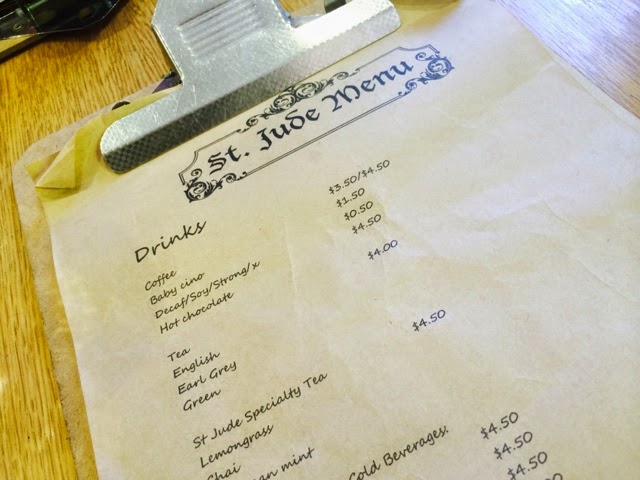 St. Jude Menu
Drinks
Coffee $3.50/$4.50
Baby cino $1.50
Decaf/Soy/Strong/x $0.50
Hot chocolate $4.50
Tea $4.00
English
Earl Grey
Green
St Jude Specialty Tea $4.50
Lemongrass
Chai
mint
Cold Beverages:
$4.50
$4.50
$4.50